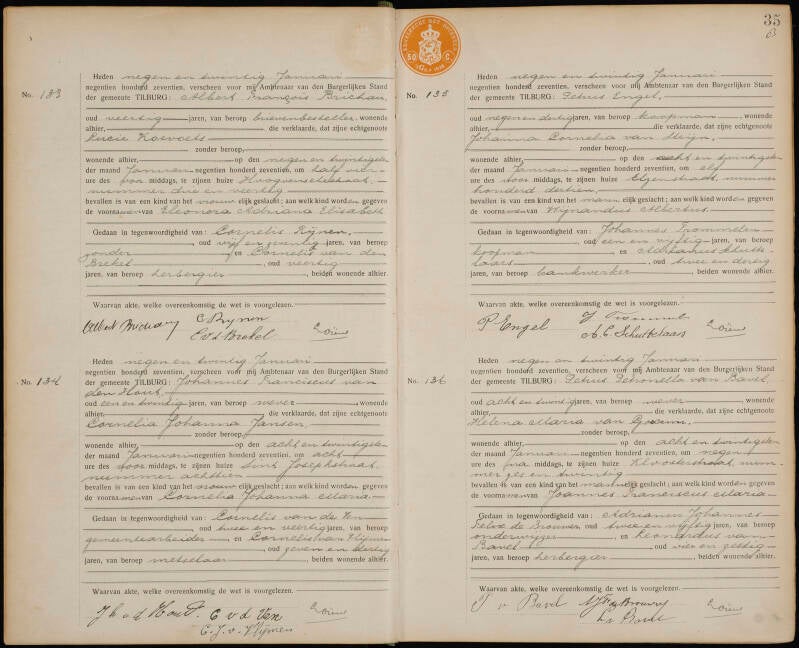 Heden negen en twintig Januari
negentien honderd zeventien, verscheen voor mij Ambtenaar van den Burgerlijken Stand
No. 133 der gemeente TILBURG: Albert François Brichau,
oud veertig jaren, van beroep brievenbesteller, wonende
alhier, die verklaarde, dat zijne echtgenoote
Lucie
zonder beroep,
wonende alhier, op den negen en twintigsten
der maand Januari negentien honderd zeventien, om half vier
ure des voormiddags, te zijnen huize
nummer drie en veertig
bevallen is van een kind van het vrouwelijk geslacht; aan welk kind worden gegeven
de voornamen van Eleonora Adriana Elisabeth
Gedaan in tegenwoordigheid van: Cornelis Rijnen,
, oud vijf en veertig jaren, van beroep
en Cornelis van den
Brekel, oud veertig
jaren, van beroep herbergier, beiden wonende alhier.
Waarvan akte, welke overeenkomstig de wet is voorgelezen.
Albert Brichau C Rijnen
C v d Brekel
Heden negen en twintig Januari
negentien honderd zeventien, verscheen voor mij Ambtenaar van den Burgerlijken Stand
No. 134 der gemeente TILBURG: Johannes Franciscus van
den Hout,
oud een en twintig jaren, van beroep wever, wonende
alhier, die verklaarde, dat zijne echtgenoote
Cornelia Johanna Jansen,
zonder beroep,
wonende alhier, op den acht en twintigsten
der maand Januari negentien honderd zeventien, om acht
ure des voormiddags, te zijnen huize Sint Josephstraat,
nummer
bevallen is van een kind van het vrouwelijk geslacht; aan welk kind worden gegeven
de voornamen van Cornelia Johanna Maria
Gedaan in tegenwoordigheid van: Cornelis van de Ven
, oud twee en veertig jaren, van beroep
gemeentearbeider en Cornelis van Vlijmen
, oud zeven en dertig
jaren, van beroep metselaar, beiden wonende alhier.
Waarvan akte, welke overeenkomstig de wet is voorgelezen.
J F v d Hout. C v d Ven
C. J. v. Vlijmen
35
50 C
Heden negen en twintig Januari
negentien honderd zeventien, verscheen voor mij Ambtenaar van den Burgerlijken Stand
No. 135 der gemeente TILBURG: Petrus Engel,
oud negen en dertig jaren, van beroep koopman, wonende
alhier, die verklaarde, dat zijne echtgenoote
Johanna Cornelia van
zonder beroep,
wonende alhier, op den acht en twintigsten
der maand Januari negentien honderd zeventien, om elf
ure des voormiddags, te zijnen huize nummer
honderd dertien,
bevallen is van een kind van het mannelijk geslacht; aan welk kind worden gegeven
de voornamen van Wijnandus Albertus.
Gedaan in tegenwoordigheid van: Johannes Trommelen
, oud een en vijftig jaren, van beroep
koopman en Adrianus Schutke-
laars, oud twee en dertig
jaren, van beroep bankwerker, beiden wonende alhier.
Waarvan akte, welke overeenkomstig de wet is voorgelezen.
P. Engel J Trommel
A. C. Schutkelaars
Heden negen en twintig Januari
negentien honderd zeventien, verscheen voor mij Ambtenaar van den Burgerlijken Stand
No. 136 der gemeente TILBURG: Petrus Petronella van Bavel
oud acht en twintig jaren, van beroep wever, wonende
alhier, die verklaarde, dat zijne echtgenoote
Helena Maria van
zonder beroep,
wonende alhier, op den acht en twintigsten
der maand Januari negentien honderd zeventien, om negen
ure des namiddags, te zijnen huize Kloosterstraat, num-
mer zes en twintig
bevallen is van een kind van het mannelijk geslacht; aan welk kind worden gegeven
de voornamen van Joannes Franciscus Maria
Gedaan in tegenwoordigheid van: Adrianus Johannes
de Brouwer, oud twee en vijftig jaren, van beroep
onderwijzer, en Leonardus van
Bavel, oud vier en zestig
jaren, van beroep herbergier, beiden wonende alhier.
Waarvan akte, welke overeenkomstig de wet is voorgelezen.
P v Bavel Brouwer
L v Bavel